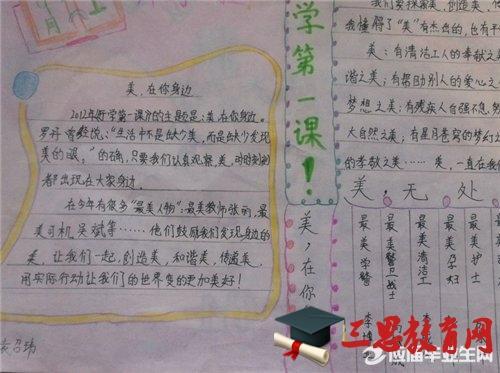 美，在你身边
2012年开学第一课介的主题是：美，在你身边。
罗丹曾经说：“生活中不是缺少美，而是缺少发现
美的眼。”的确，只要我们认真观察，美，时时刻刻
都出现在大家身边。
在今年有很多“最美人物”：最美教师张丽，最
美司机，吴斌等……他们鼓励我们发现身边的
美，让我们一起，创造美，和谐美，传递美，
用实际行动让我们的世界变的更加美好！
学第一课！
我们要探索美，创造美，
我懂得了“美”有杰出的，也有平
美：有清洁工人的奉献之美
谐之美；有帮助别人的爱心之
梦想之美；有残疾人自强不息
大自然之美；有星月苍穹的梦幻之
的孝敬之美……美，一直在我们
美，无处
美，在你
最美学警
最美警卫战士
最美清洁工
最美孕妇
最美护士
李博
三思教育网
应届毕业生网